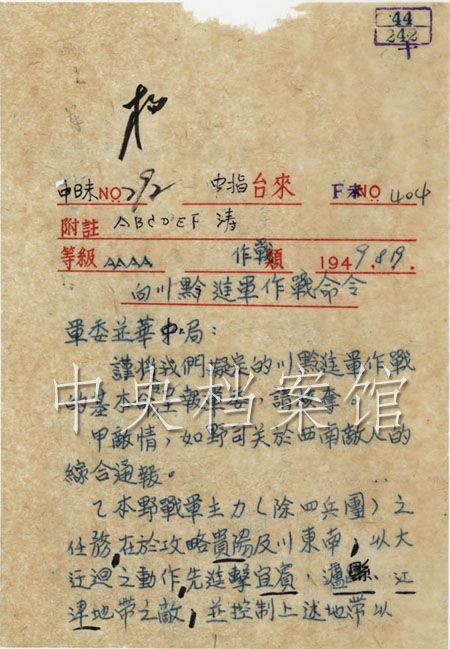 44
242
中B未NO292 中指台來 F未NO 404
附註 ABCDEF 涛
等級 AAAA 作戰類 1949.8.19.
向川黔進軍作戰命令
軍委並華中局：
謹將我們擬定的川黔進軍作戰
基本命令呈報軍委，請核奪。
甲敵情，如野司关於西南敵人的
綜合通報。
乙本野戰軍主力（除四兵團）之
任務，在於攻略貴陽及川東南，以大
迂迴之動作，先進擊宜賓，瀘縣、江
津地带之敵，並控制上述地带以
中央档案馆